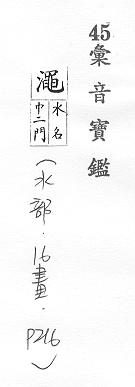 45彙音寶鑑
澠
水名
巾二門
(水部.16畫.P216)